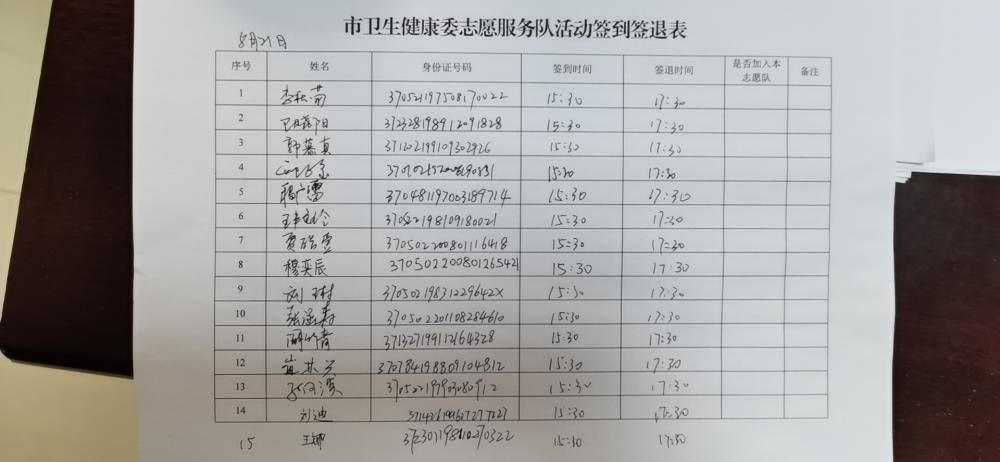 市卫生健康委志愿服务队活动签到签退表
8月21日
序号 姓名 身份证号码 签到时间 签退时间 是否加入本志愿队 备注
1 李秋菊 370521197508170022 15:30 17:30
2 372328198912091828 15:30 17:30
3 郭慕真 371202199109302926 15:30 17:30
4 15:30 17:30
5 370481197003189714 15:30 17:30
6 370522198109180021 15:30 17:30
7 370502200801116418 15:30 17:30
8 穆奕辰 370502200801265421 15:30 17:30
9 37050219831229642X 15:30 17:30
10 张涵寿 370502201108284610 15:30 17:30
11 371327199112164328 15:30 17:30
12 崔 370784198809104812 15:30 17:30
13 370522197903080912 15:30 17:30
14 刘迪 15:30 17:30
15 王娜 372301198110270322 15:30 17:30